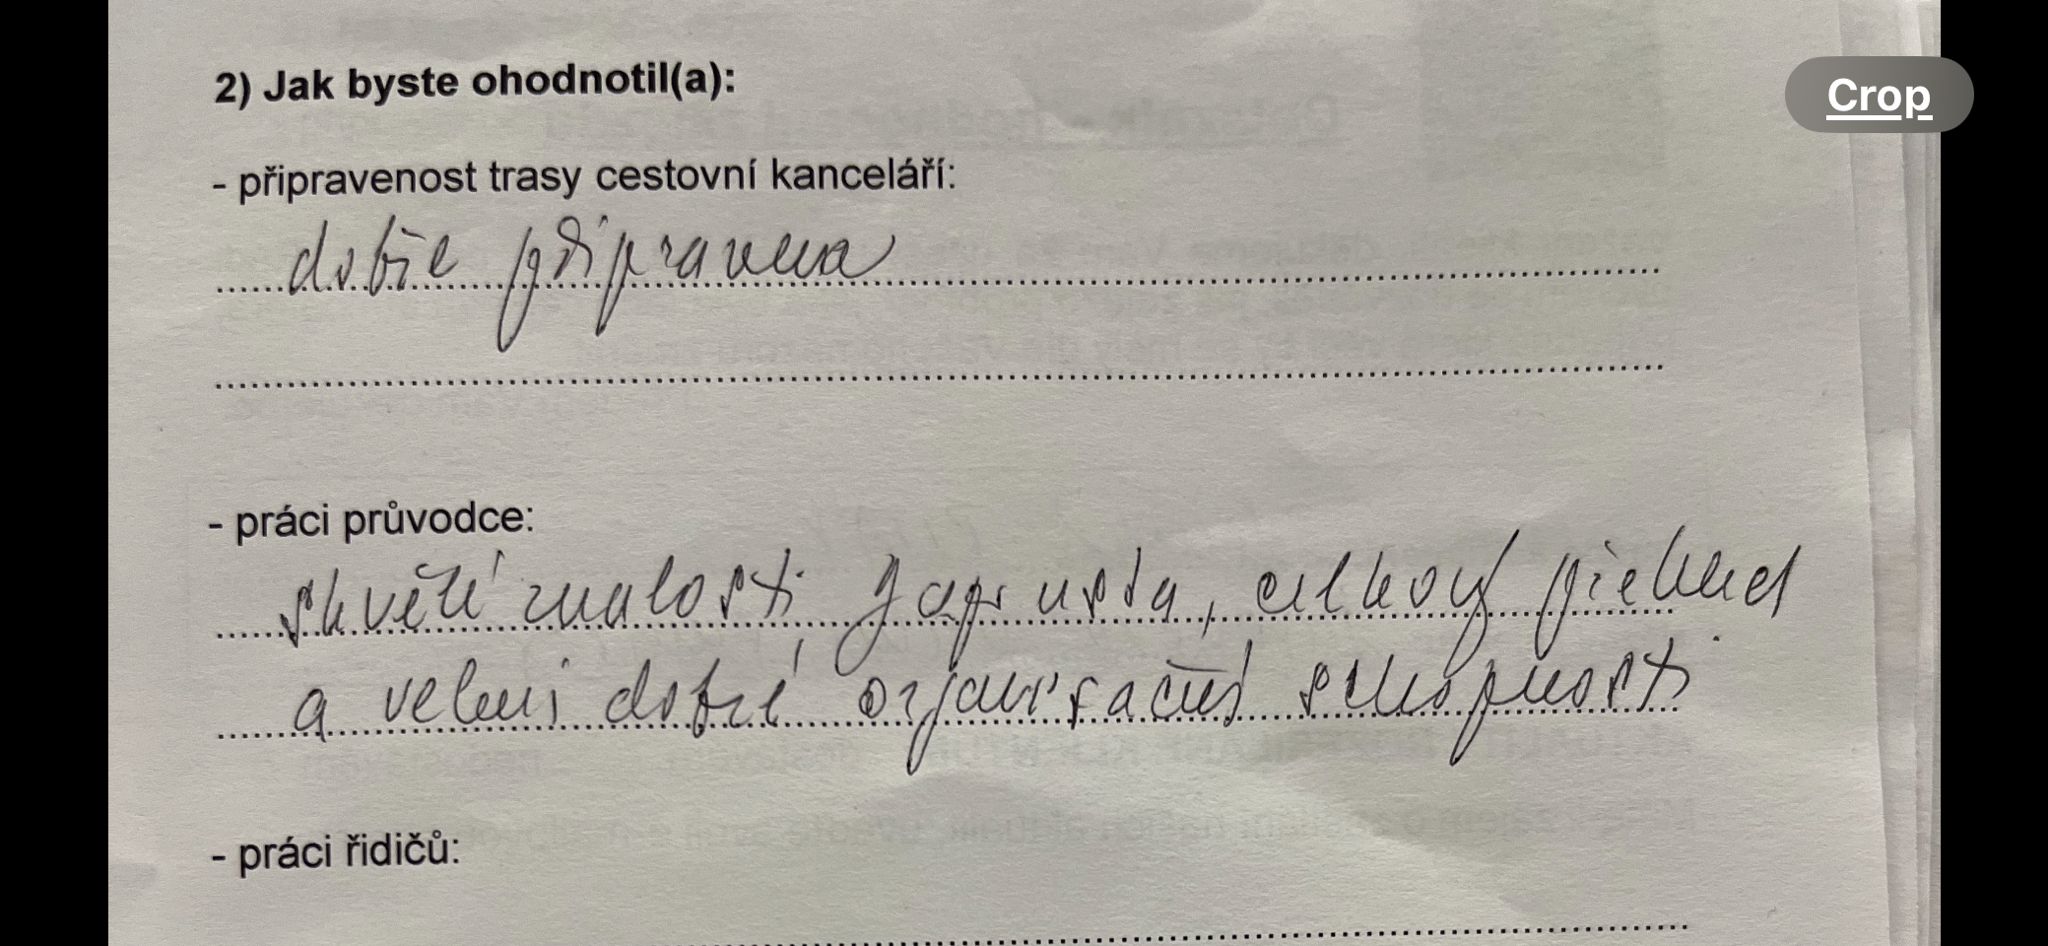 Crop
2) Jak byste ohodnotil(a):
- připravenost trasy cestovní kanceláří:
dobře připravena
- práci průvodce:
skvělé znalosti Japonska, celkový přehled
a velmi dobré organizační schopnosti
- práci řidičů: